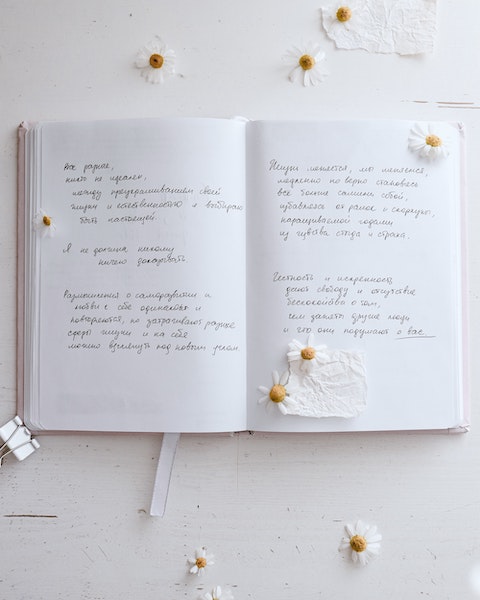 Все разные,
никто не идеален,
между приукрашиванием своей
жизни и естественностью я выбираю
быть настоящей.
Я не должна никому
ничего доказывать
Размышления о саморазвитии и
любви к себе одинаковы и
повторяются, но затрагивают разные
сферы жизни и на себя
можно взглянуть под новым углом
Жизнь меняется, мы меняемся,
медленно но верно становясь
все больше самими собой,
избавляясь от рамок и скорлупы,
наращиваемой годами
из чувства стыда и страха.
Честность и искренность
дают свободу и отсутствие
беспокойства о том,
чем заняты другие люди
и что они подумают о вас.